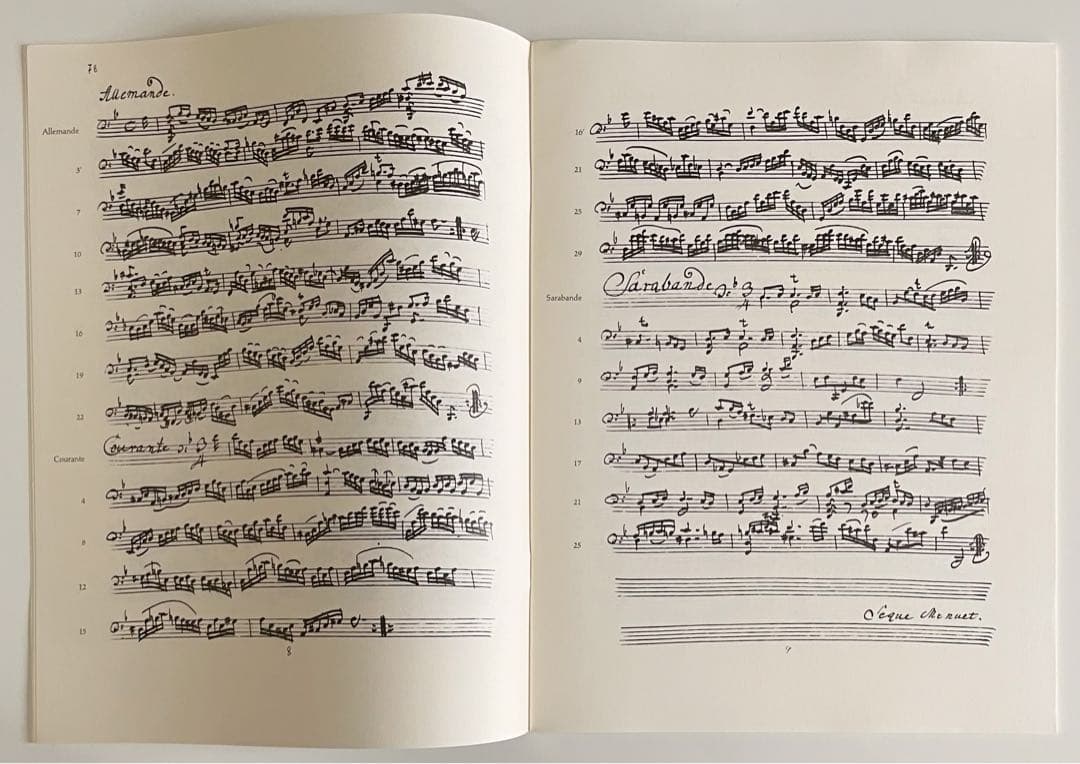 78
Allemande.
Allemande
3'
7
10
13
16
19
22
Courante
Courante
4
8
12
15
8
16'
21
25
29
Sarabande
Sarabande
4
9
13
17
21
25
Seque Menuet.